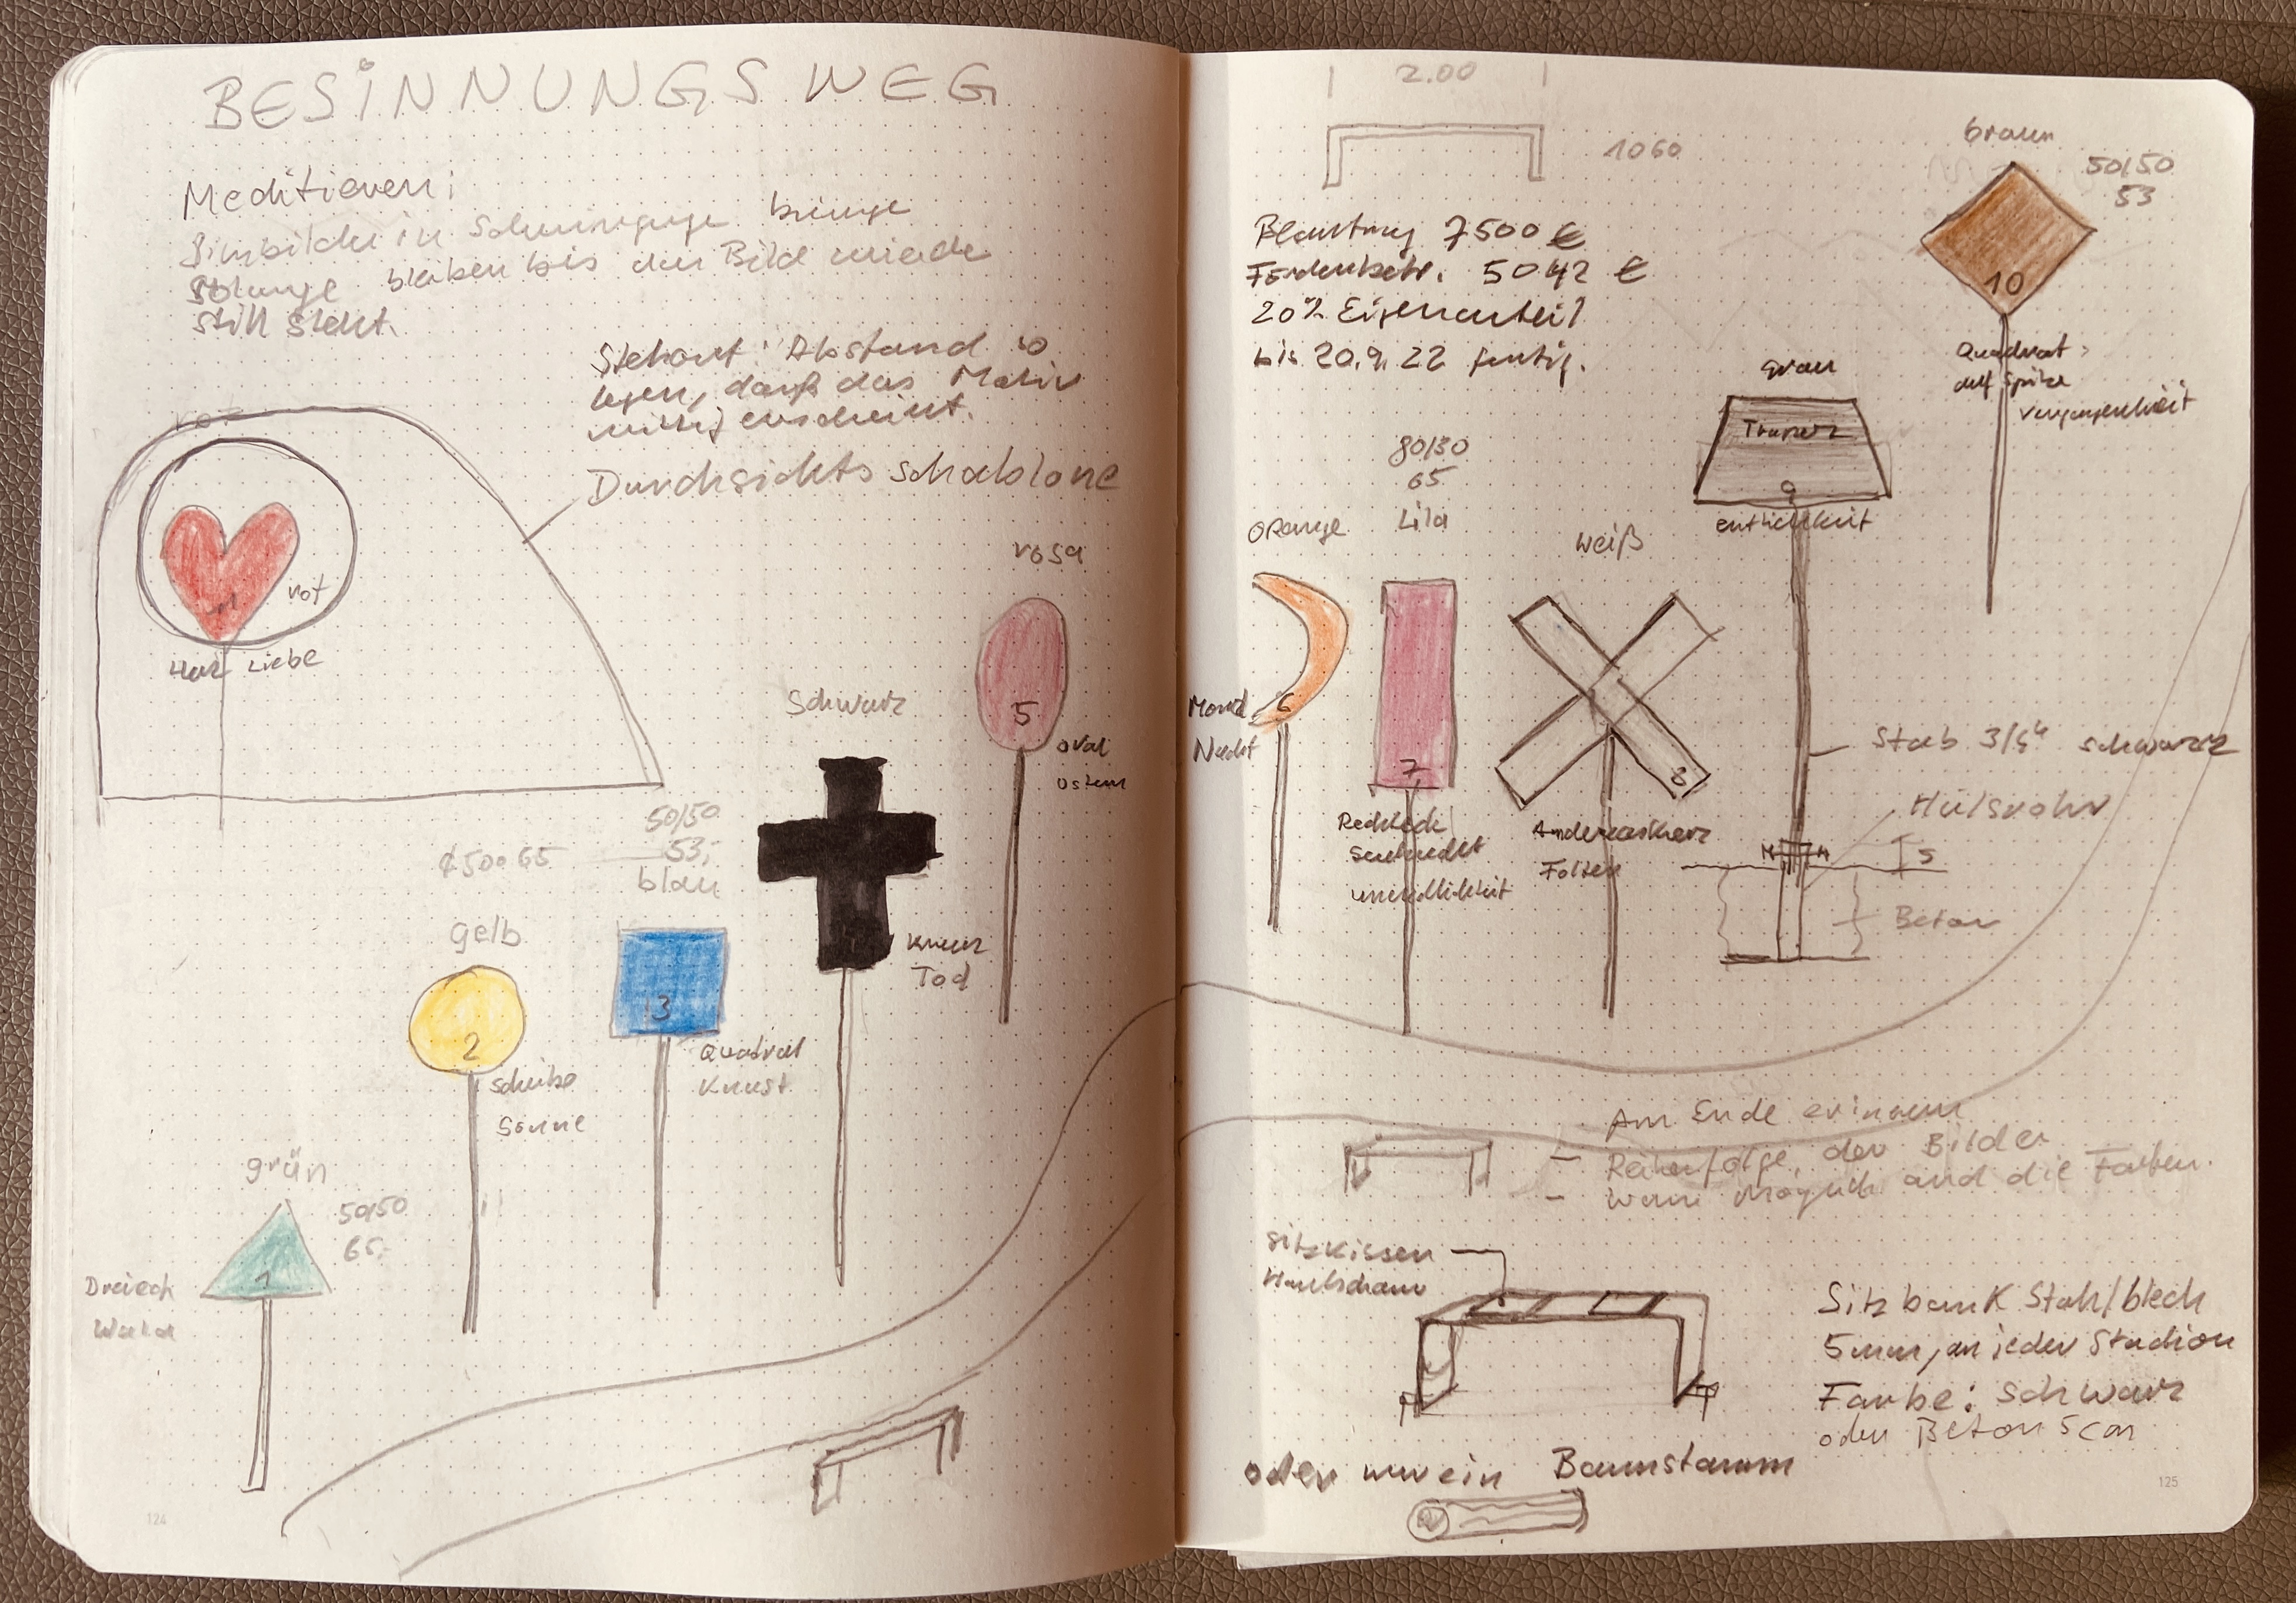 BESINNUNGSWEG
Meditieren:
Sinbilder in Schwingung bringe
Solange bleiben bis das Bild wieder
still steht.
Stehort: Abstand so
legen, daß das Motiv
mittig erscheint.
Durchsichtsschablone
rot
11
rot
Herz Liebe
rosa
5
oval
ostern
Schwarz
Kreuz
Tod
50/50
53,-
blau
13
Quatrat
Kunst
gelb
2
Scheibe
Sonne
grün
50/50
65,-
1
Dreieck
124
2.00
1060
7500 €
5042 €
20% Eigenanteil
bis 20.9.22 fertig.
braun
50/50
53
10
Quadrat
auf Spitze
Vergangenheit
grau
Trapez
9
entlichkeit
80/30
65
Lila
orange
weiß
6
Mond
Nacht
7
Rechteck
Senkrecht
unendlichkeit
8
Andreaskreuz
Folter
Stab 3/4" schwarz
Hülsrohr
5
Beton
Am Ende erinnern
- Reihenfolge, der Bilder
- Wenn möglich and die Farben.
Sitzkissen
Sitzbank Stahlblech
5mm, an jeder Stadion
Farbe: Schwarz
oder Beton 5cm
oder nur ein Baumstamm
125